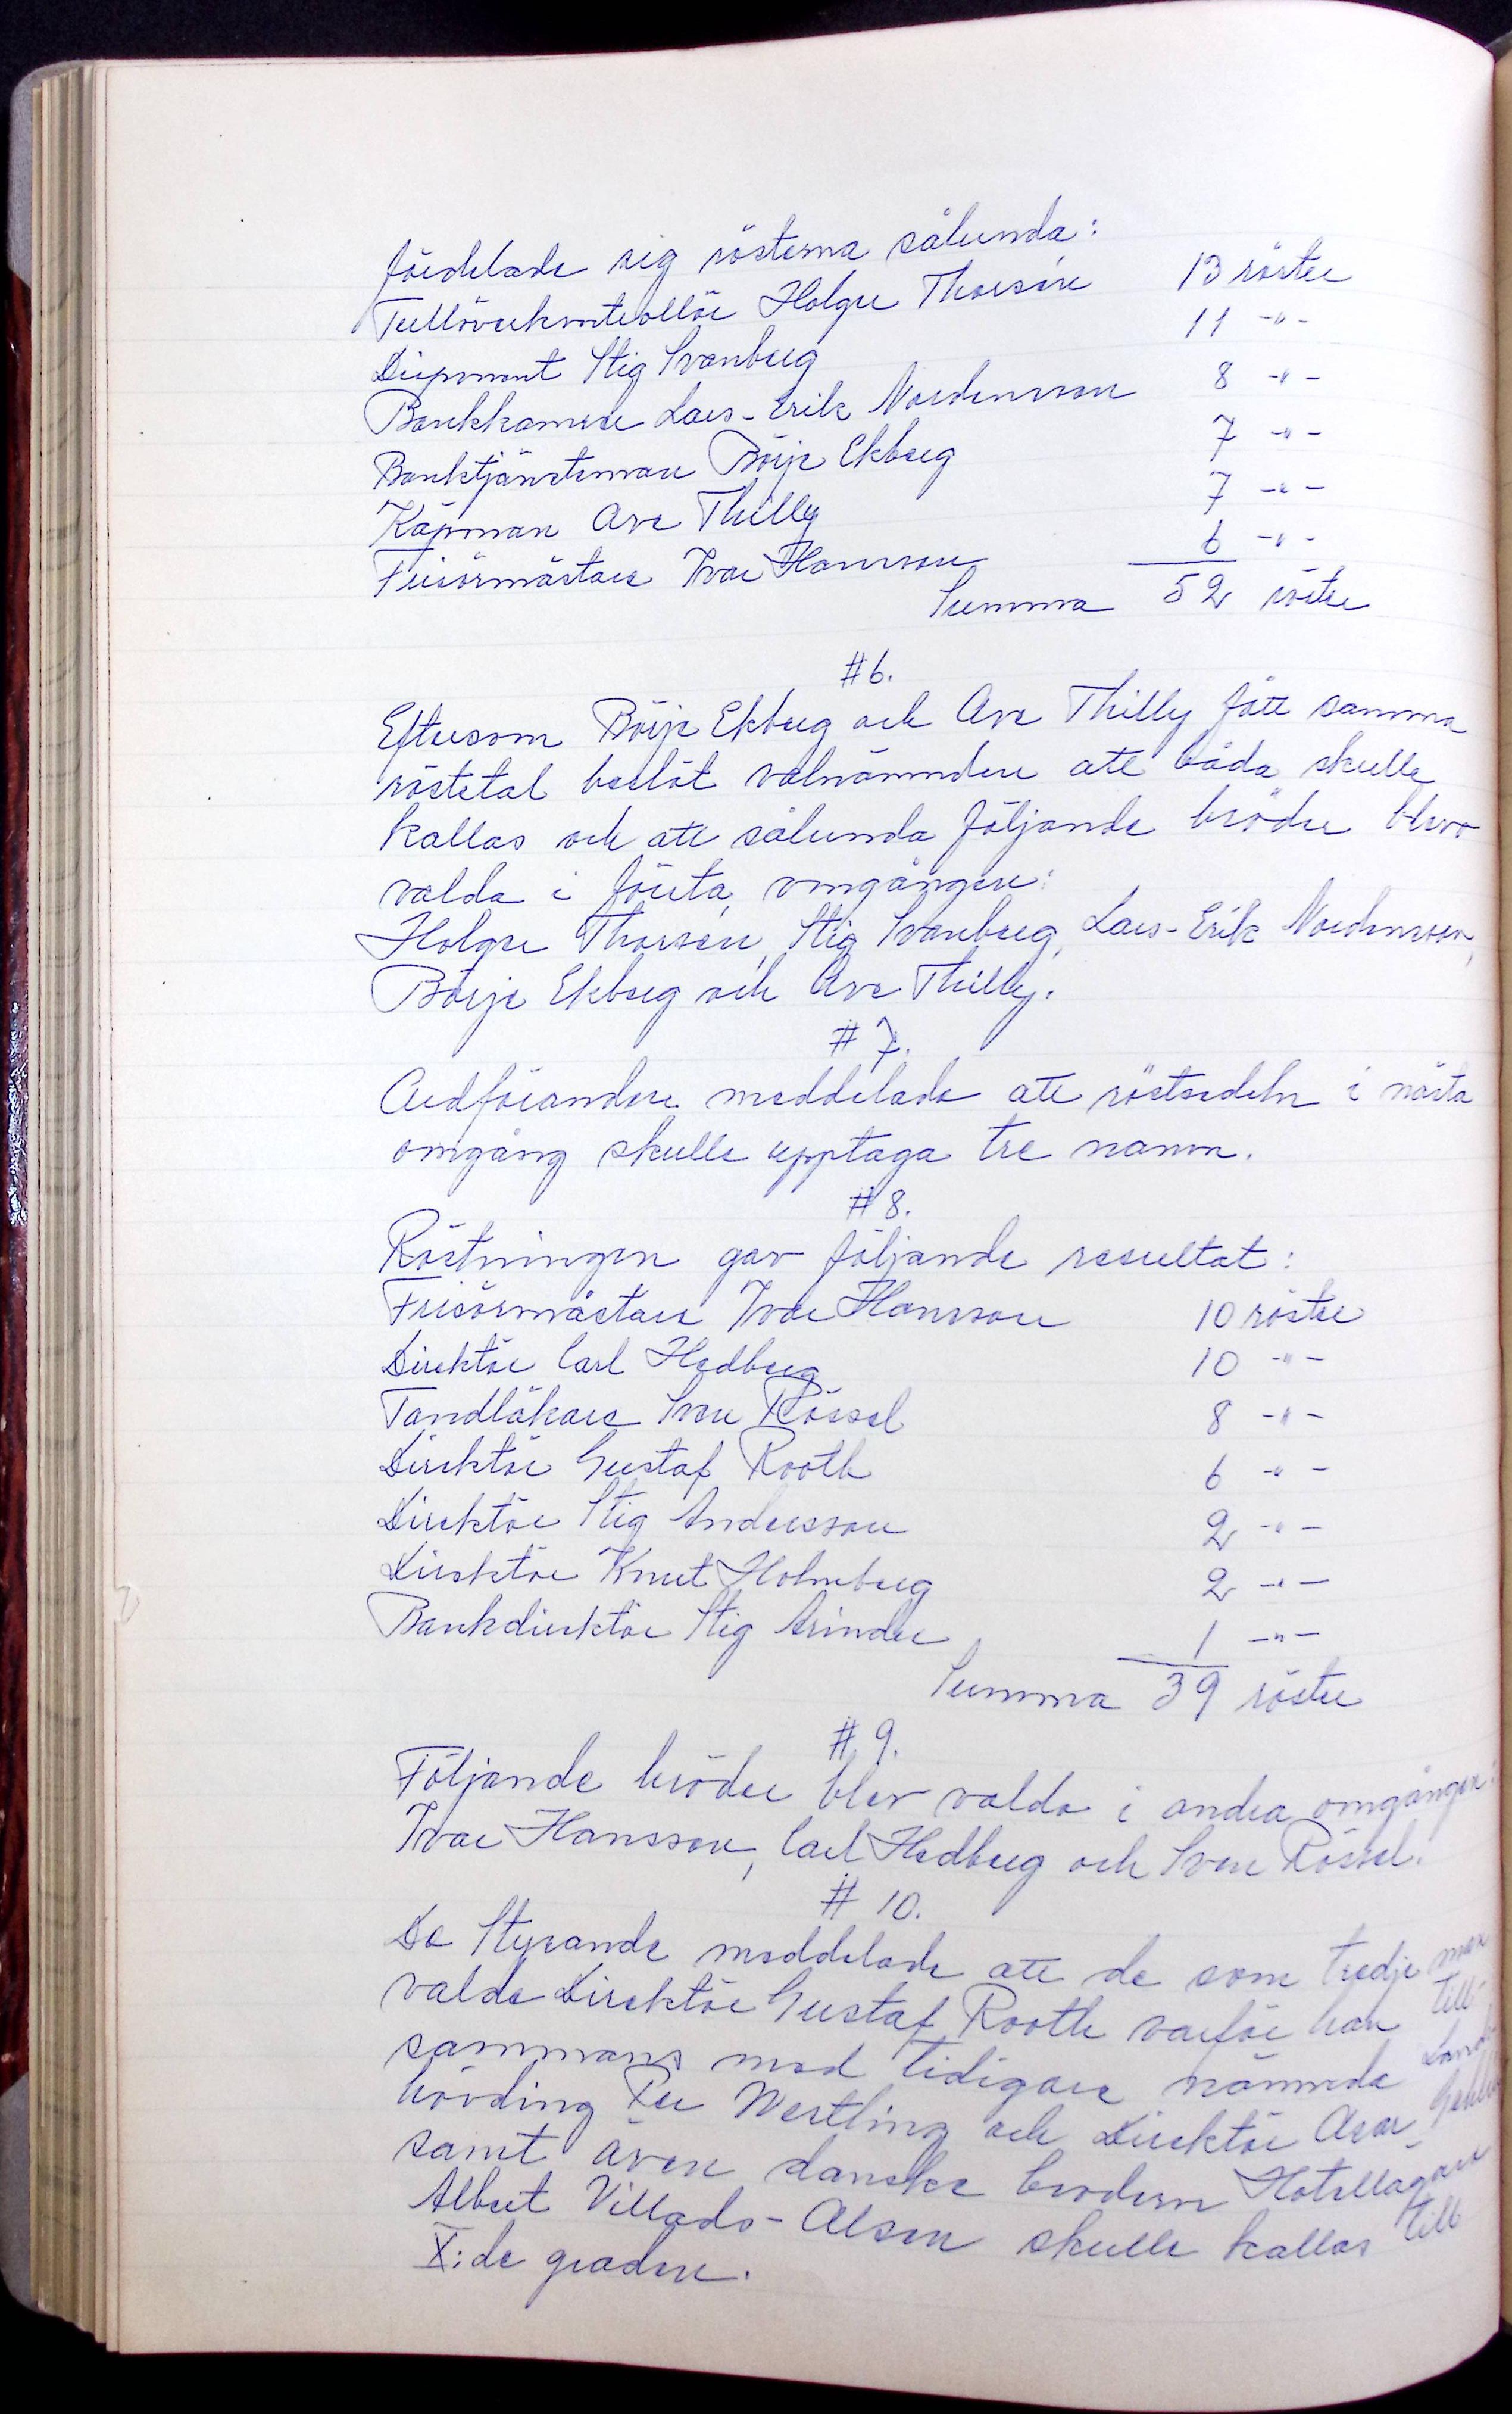 fördelade sig rösterna sålunda:
Tullöverkontrollör Holger Thorsén 13 röster
Disponent Stig Svanberg 11 -"-
Bankkamrer Lars-Erik Nordensson 8 -"-
Banktjänsteman Börje Ekberg 7 -"-
Köpman Ove Thilly 7 -"-
Frisörmästare Ivar Hansson 6 -"-
Summa 52 röster
#6.
Eftersom Börje Ekberg och Ove Thilly fått samma
röstetal beslöt valnämnden att båda skulle
kallas och att sålunda följande bröder blevo
valda i första omgången:
Holger Thorsén, Stig Svanberg, Lars-Erik Nordensson,
Börje Ekberg och Ove Thilly.
#7.
Ordföranden meddelade att röstsedeln i nästa
omgång skulle upptaga tre namn.
#8.
Röstningen gav följande resultat:
Frisörmästare Ivar Hansson 10 röster
Direktör Carl Hedberg 10 -"-
Tandläkare Sven Rössel 8 -"-
Direktör Gustaf Rooth 6 -"-
Direktör Stig Andersson 2 -"-
Direktör Knut Holmberg 2 -"-
Bankdirektör Stig Arinder 1 -"-
Summa 39 röster
#9.
Följande bröder blev valda i andra omgången:
Ivar Hansson, Carl Hedberg och Sven Rössel.
#10.
De Styrande meddelade att de som tredje man
valde Direktör Gustaf Rooth varför han till-
sammans med tidigare nämnda Lands-
hövding Per Westling och Direktör
samt även danske brodern Hotellägare
Albert Villads-Olsen skulle kallas till
X:de graden.